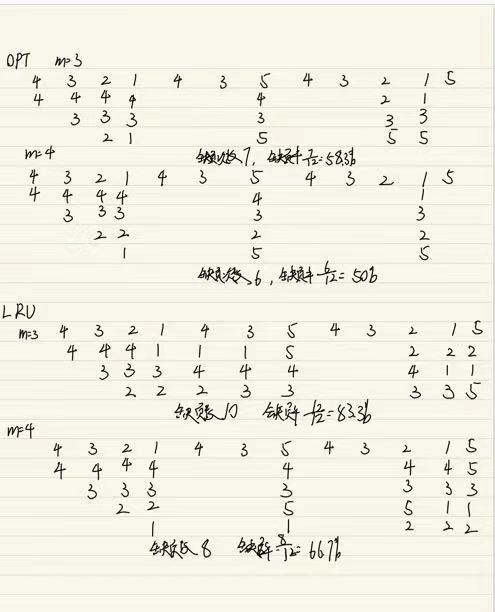 OPT m=3
4 3 2 1 4 3 5 4 3 2 1 5
4 4 4 4 4 2 1
3 3 3 3 3 3
2 1 5 5 5
缺页次数 7, 缺页率 7/12=58.3%
m=4
4 3 2 1 4 3 5 4 3 2 1 5
4 4 4 4 4 1
3 3 3 3 3
2 2 2 2
1 5 5
缺页次数 6, 缺页率 6/12=50%
LRU
m=3 4 3 2 1 4 3 5 4 3 2 1 5
4 4 4 1 1 1 5 2 2 2
3 3 3 4 4 4 4 1 1
2 2 2 3 3 3 3 5
缺页数 10 缺页率 10/12=83.3%
m=4
4 3 2 1 4 3 5 4 3 2 1 5
4 4 4 4 4 4 4 5
3 3 3 3 3 3 3
2 2 5 5 1 1
1 1 2 2 2
缺页次 8 缺页率=8/12=66.7%